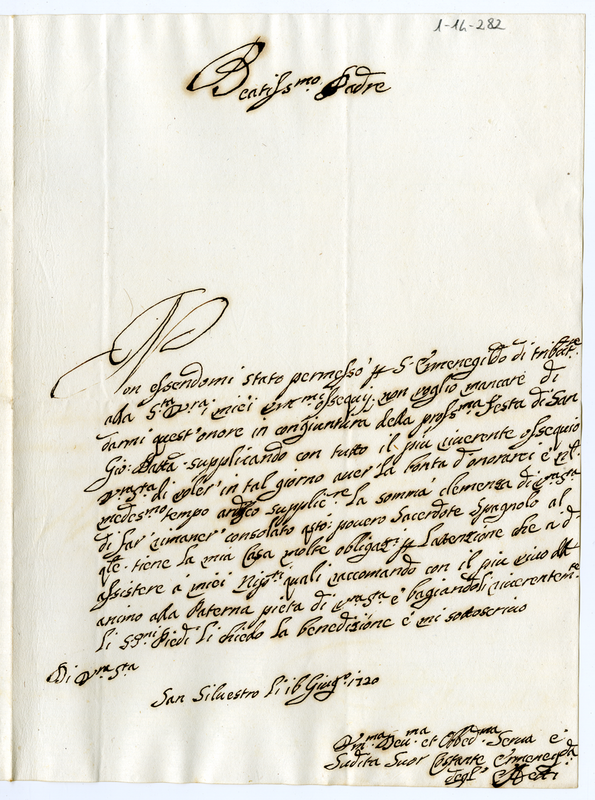 1-14-282
Beatiss.mo Padre
Non essendomi stato permesso p S. Ermenegildo di tribut.re
alla S.ta V.ra i miei um.mi ossequij, non voglio mancare di
darmi quest'onore in congiuntura della pross.ma Festa di San
Gio: Batta supplicando con tutto il più riverente ossequio
V.ra S.ta di voler in tal giorno aver la bontà d'onorarci è nel
medesmo tempo ardisco supplic.re la somma clemenza di V.ra S.ta
di far rimaner consolato qsto povero Sacerdote Spagnolo al
qle tiene la mia Casa molte obligaz.i p l'atenzione che à d'
assistere a miei Nipoti quali raccomando con il più vivo dell
animo alla Paterna pietà di V.ra S.ta è bagiandoli riverentem.te
li SS.mi Piedi li chiedo la benedizione è mi sottoscrivo
Di V.ra S.ta
San Silvestro li 16 Giug.o 1720
Um.ma Dev.ma et Obbed.ma Serva è
Sudita Suor Costante Ermeneg.da
degl'